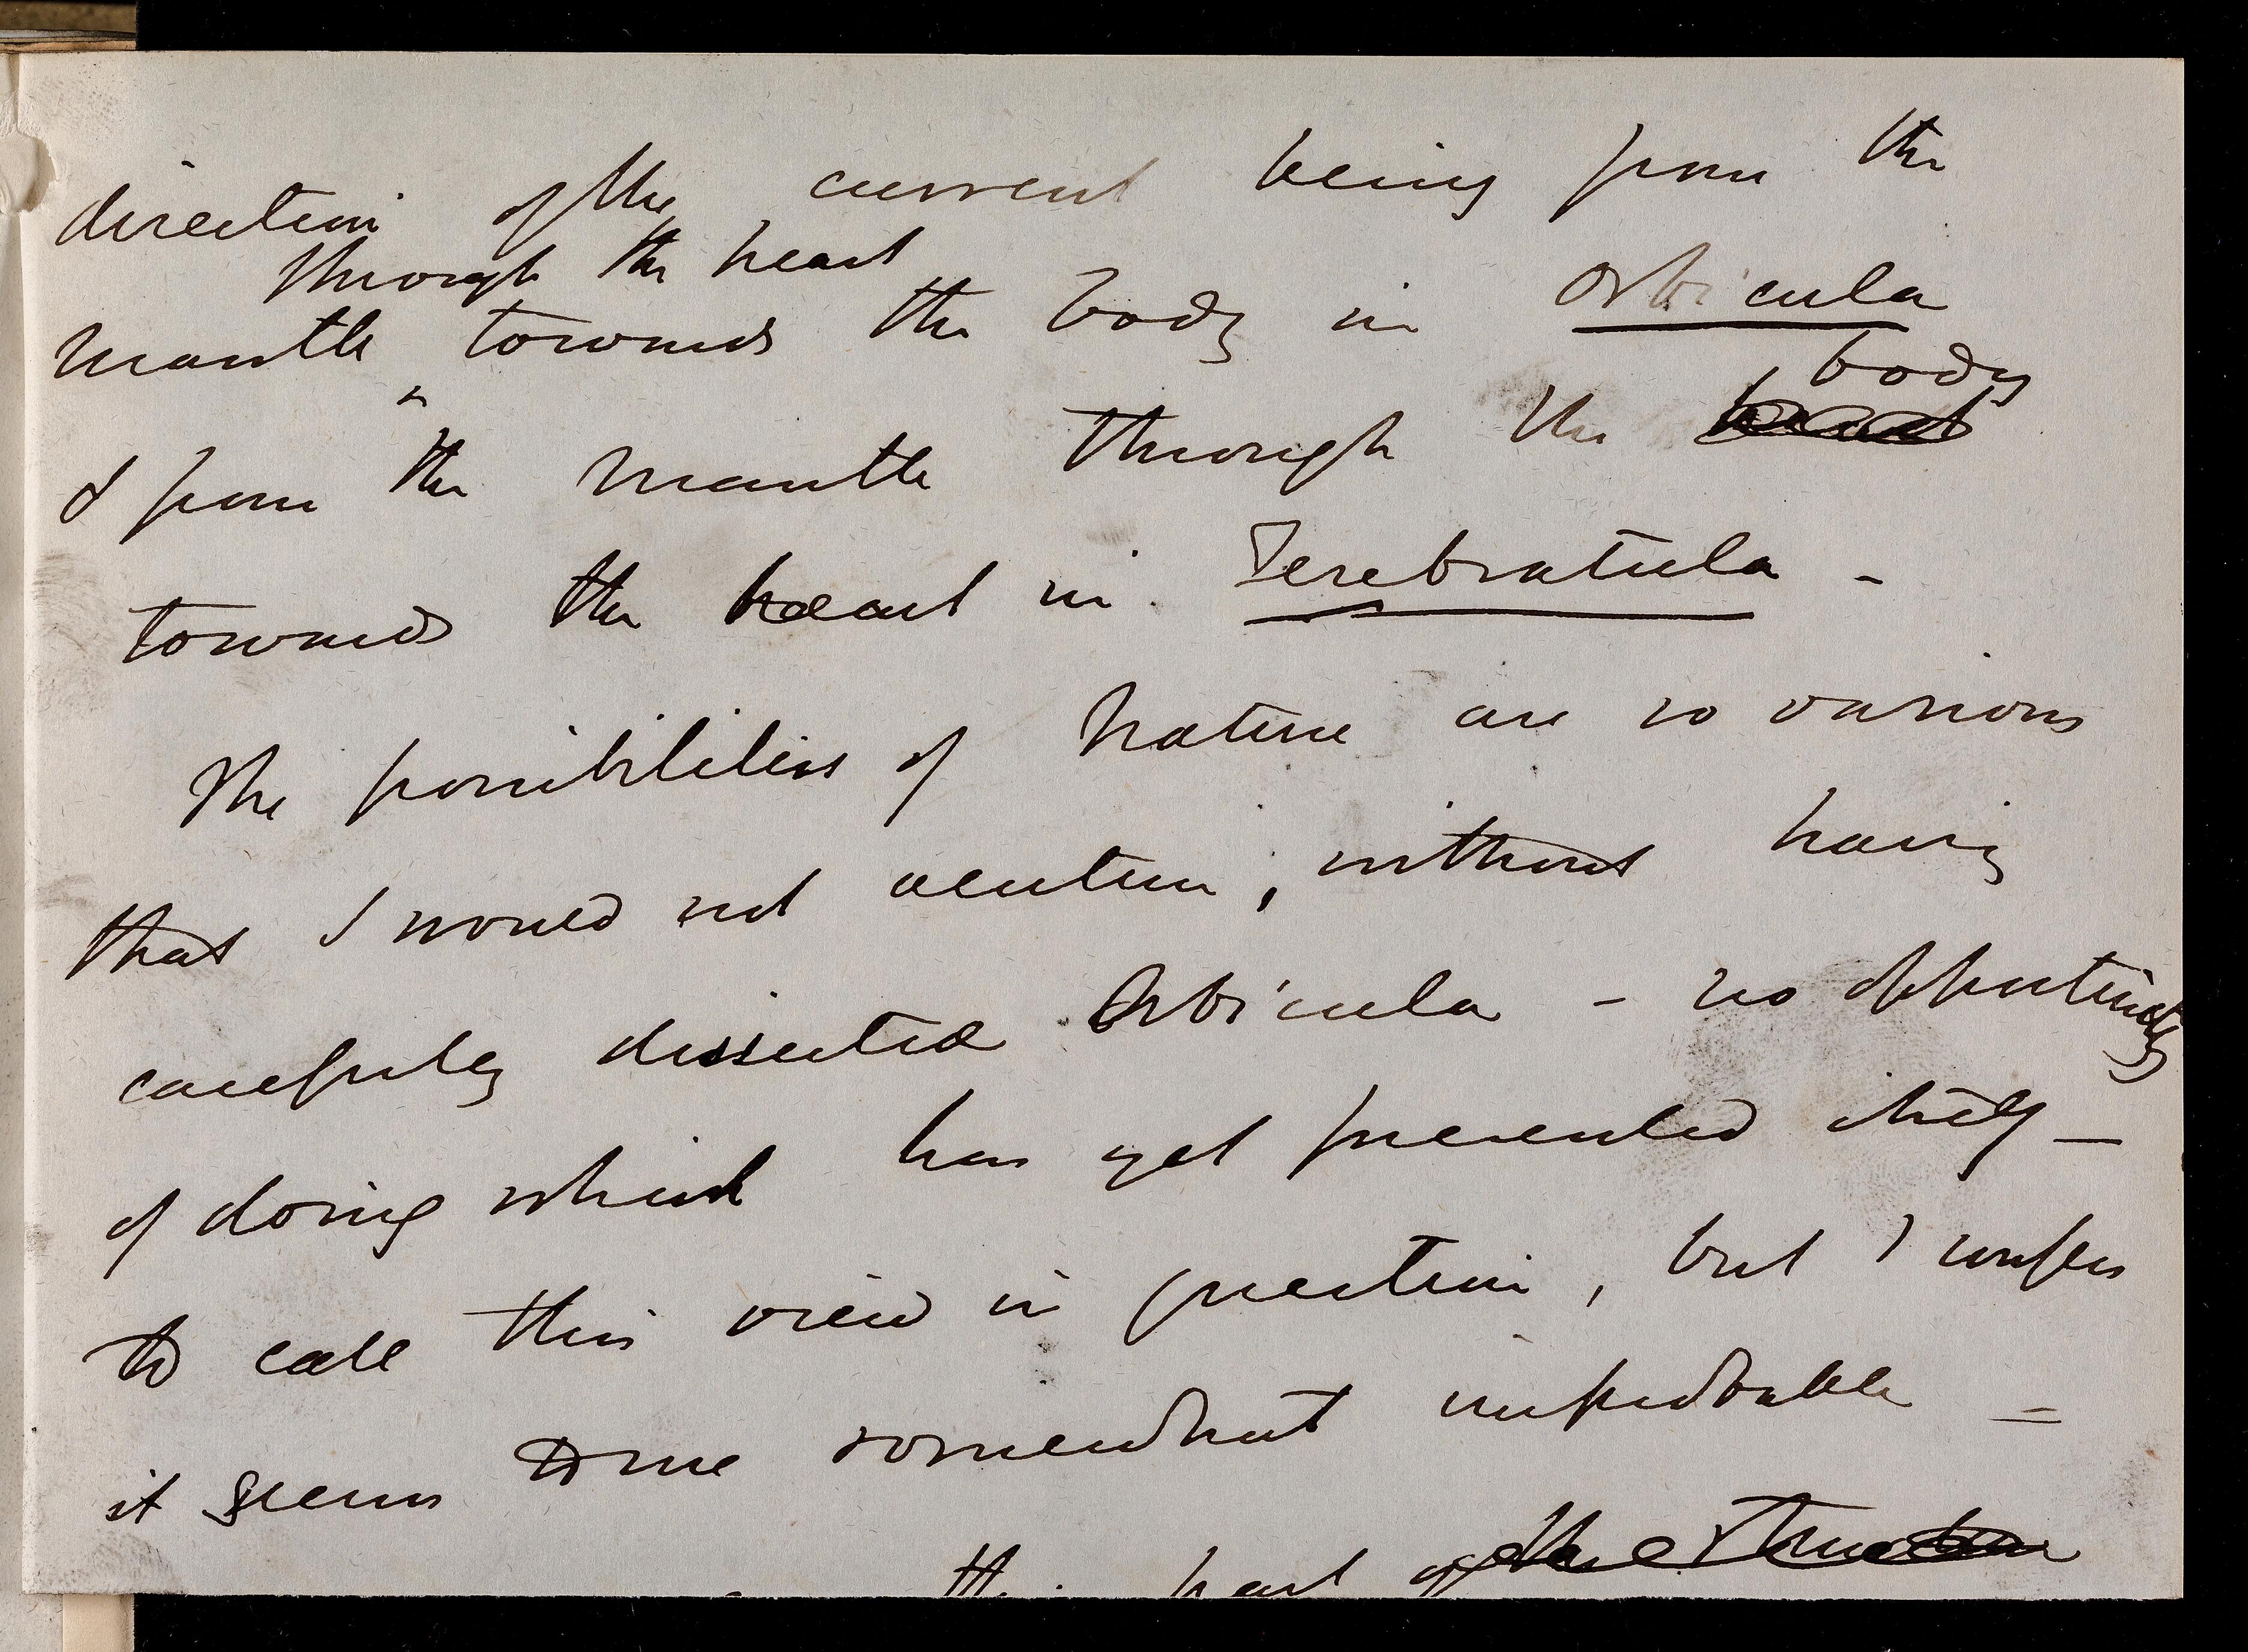 direction of the current being from the
through the heart
mantle towards the body in Orbicula
body
& from the mantle through the heart
towards the heart in Terebratula -
The possibilities of Nature are so various
that I would not venture, without having
carefully dissected Orbicula - no opportunity
of doing which has yet presented itself —
to call this view in question, but I confess
it seems to me somewhat improbable =
this part of the structure